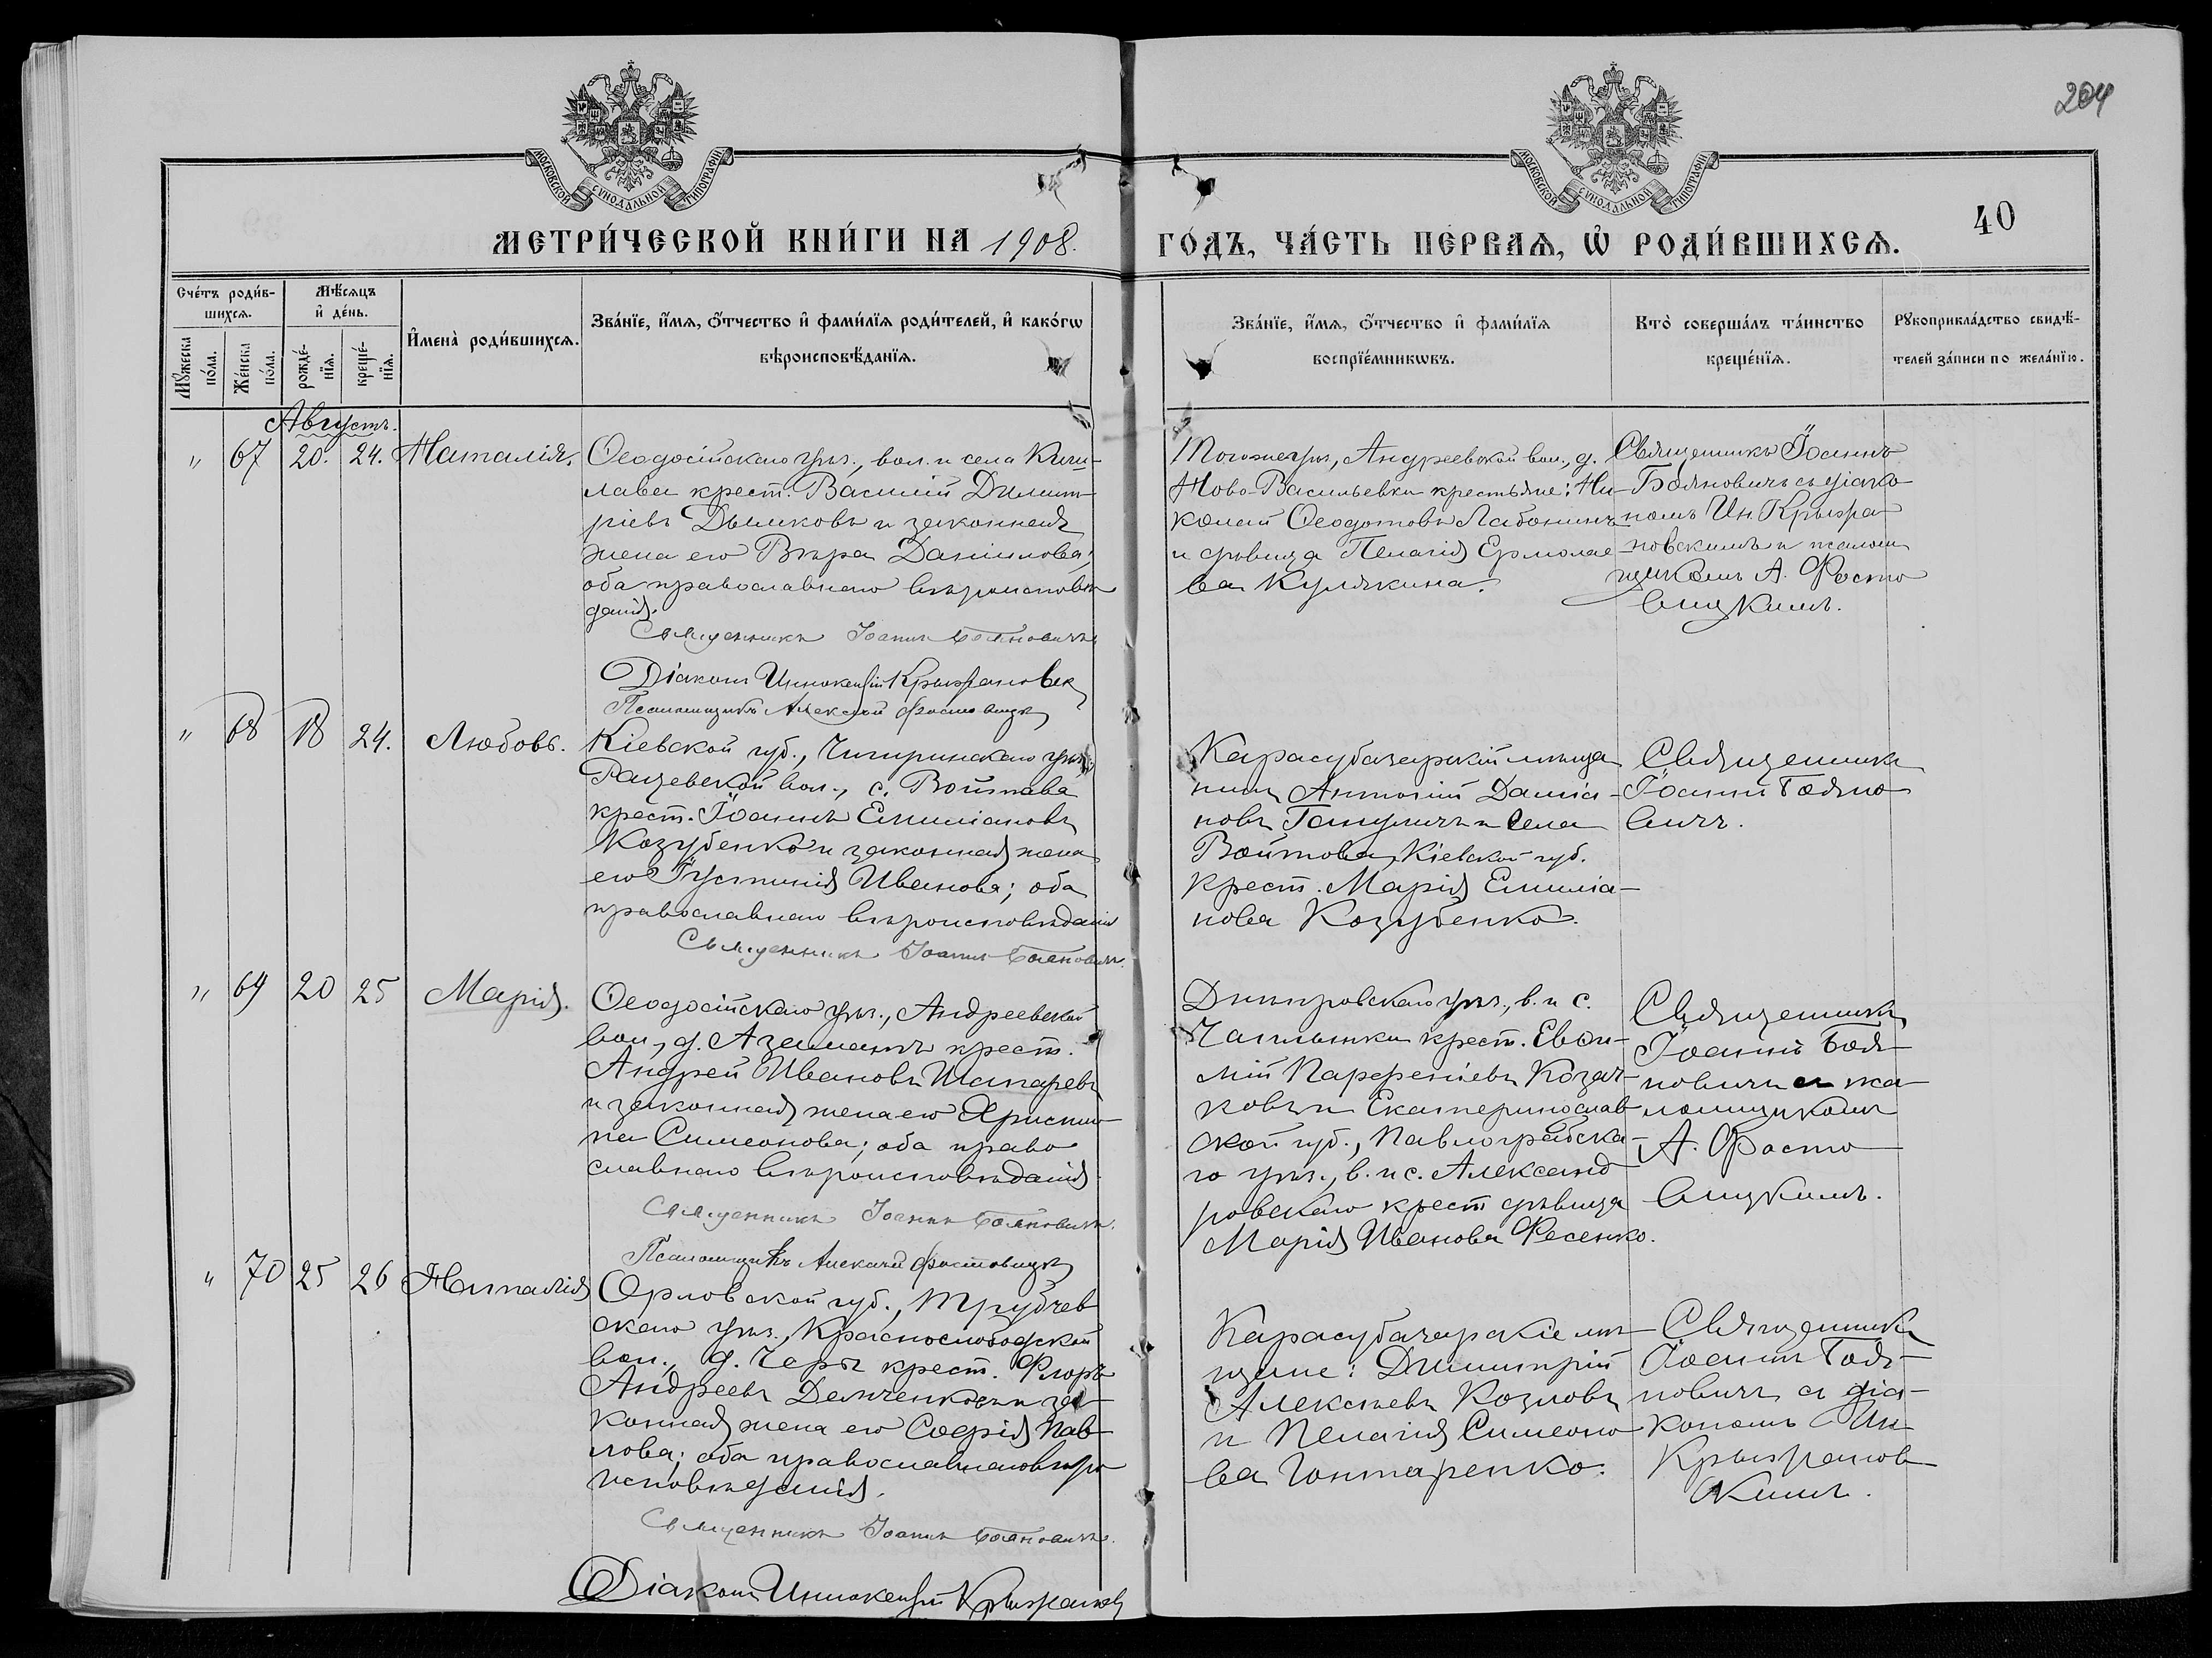 204
МОСКОВСКОЙ СѴНОДАЛЬНОЙ ТИПОГРАФІИ
МОСКОВСКОЙ СѴНОДАЛЬНОЙ ТИПОГРАФІИ
40
МЕТРИ́ЧЕСКОЙ КНИ́ГИ НА 1908.
ГО́ДЪ, ЧА́СТЬ ПЕ́РВАѦ, Ѡ҆ РОДИ́ВШИХСѦ.
Сче́тъ роди́в-
шихсѧ.
Мꙋ́жеска
по́ла.
Же́нска
по́ла.
Мѣ́сѧцъ
и҆ де́нь.
рожде́-
нїѧ.
креще́-
нїѧ.
И҆мена̀ роди́вшихсѧ.
Зва́нїе, и҆́мѧ, ѻ҆́тчество и҆ фами́лїѧ роди́телей, и҆ како́гѡ
вѣроисповѣ́данїѧ.
Зва́нїе, и҆́мѧ, ѻ҆́тчество и҆ фами́лїѧ
воспрїе́мникѡвъ.
Кто̀ соверша́лъ та́инство
креще́нїѧ.
Рꙋкоприкла́дство свидѣ́-
телей за́писи по жела́нїю.
Августъ.
" 67 20. 24. Наталія.
Ѳеодосійскаго уѣз., вол. и села Кши-
лава крест. Василій Димит-
ріевъ Дымковъ и законная
жена его Вѣра Даніилова;
оба православнаго вѣроисповѣ
данія.
Священникъ Іоаннъ Бояновичъ.
Діаконъ Иннокентій Крыжановск
Псаломщикъ Алексѣй Фостовицк
Тогоже уѣз., Андреевской вол., д.
Ново-Васильевки крестьяне: Ни-
колай Ѳеодотовъ Лабонинъ
и дѣвица Пелагія Ермолае
ва Кулякина.
Священникъ Іоаннъ
Бояновичъ съ діако
номъ Ин. Крыжа
новскимъ и псалом
щикомъ А. Фосто
вицкимъ.
" 68 18 24. Любовь.
Кіевской губ., Чигиринскаго уѣз.,
Рацевской вол., с. Войтова
крест. Іоаннъ Емиліановъ
Козубенко и законная жена
его Іустинія Иванова; оба
православнаго вѣроисповѣданія
Священникъ Іоаннъ Бояновичъ.
Карасубазарскій мѣща
нинъ Антоній Даміа-
новъ Ганулич и села
Войтова, Кіевской губ.
крест. Марія Емиліа-
нова Козубенко.
Священникъ
Іоаннъ Бояно
вичъ.
" 69 20 25 Марія.
Ѳеодосійскаго уѣз., Андреевской
вол., д. Азаматъ крест.
Андрей Ивановъ Шапаревъ
и законная жена его Христи-
на Симеонова; оба право
славнаго вѣроисповѣданія.
Священникъ Іоаннъ Бояновичъ.
Псаломщикъ Алексѣй Фостовицк
Днѣпровскаго уѣз., в. и с.
Чаплынки крест. Евѳи-
мій Парфеніевъ Козач-
ковъ и Екатеринослав
ской губ., Павлоградска-
го уѣз., в. и с. Александ
ровскаго крест дѣвица
Марія Иванова Фесенко.
Священникъ
Іоаннъ Боя-
новичъ съ пса-
ломщикомъ
А. Фосто
вицкимъ.
" 70 25 26 Наталія
Орловской губ., Трубчев
скаго уѣз., Краснослободской
вол., д. Черы крест. Флоръ
Андреевъ Демченковъ и за-
конная жена его Софія Пав
лова; оба православнаго вѣро
исповѣданія.
Священникъ Іоаннъ Бояновичъ.
Діаконъ Иннокентій Крыжановск
Карасубазарскіе мѣ
щане: Димитрій
Алексѣевъ Козловъ
и Пелагія Симеоно
ва Гонтаренко.
Священникъ
Іоаннъ Боя-
новичъ съ діа-
кономъ Ин
Крыжанов
скимъ.